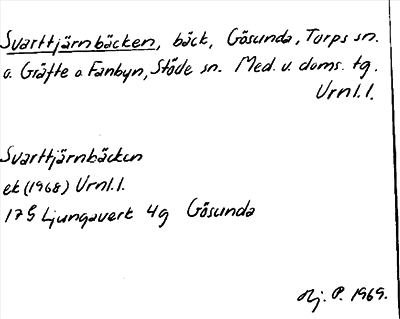 Svarttjärnbäcken, bäck, Gösunda, Torps sn.
o. Gräfte o Fanbyn, Stöde sn. Med. v. doms. tg.
Urnl.l.
Svarttjärnbäcken
ek (1968) Urnl.l.
17G Ljungaverk 4g Gösunda
P. 1969.